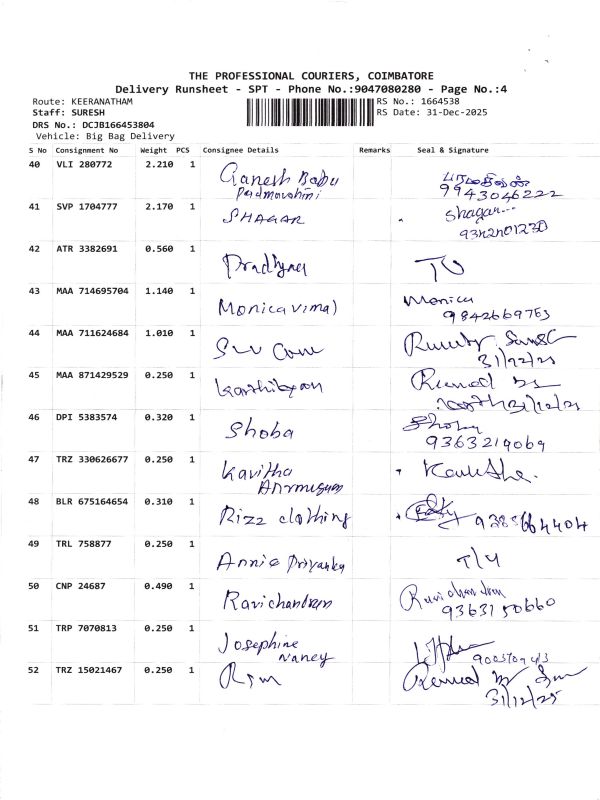 THE PROFESSIONAL COURIERS, COIMBATORE
Delivery Runsheet - SPT - Phone No.:9047080280 - Page No.:4
Route: KEERANATHAM RS No.: 1664538
Staff: SURESH RS Date: 31-Dec-2025
DRS No.: DCJB166453804
Vehicle: Big Bag Delivery
S No Consignment No Weight PCS Consignee Details Remarks Seal & Signature
40 VLI 280772 2.210 1 Ganesh Babu
Padmavathini 9943046222
41 SVP 1704777 2.170 1 SHAGAR Shagar
42 ATR 3382691 0.560 1
43 MAA 714695704 1.140 1 Monica Vimal Monica
9842669763
44 MAA 711624684 1.010 1
31/12/25
45 MAA 871429529 0.250 1 Received
31/12/25
46 DPI 5383574 0.320 1 Shoba Shoba
9363219069
47 TRZ 330626677 0.250 1 Kavitha
Arumugam
48 BLR 675164654 0.310 1 Rizz clothing
49 TRL 758877 0.250 1 Annie Priyanka
50 CNP 24687 0.490 1 Ravichandran Ravichandran
9363150660
51 TRP 7070813 0.250 1 Josephine
Nancy
52 TRZ 15021467 0.250 1 Received
31/12/25